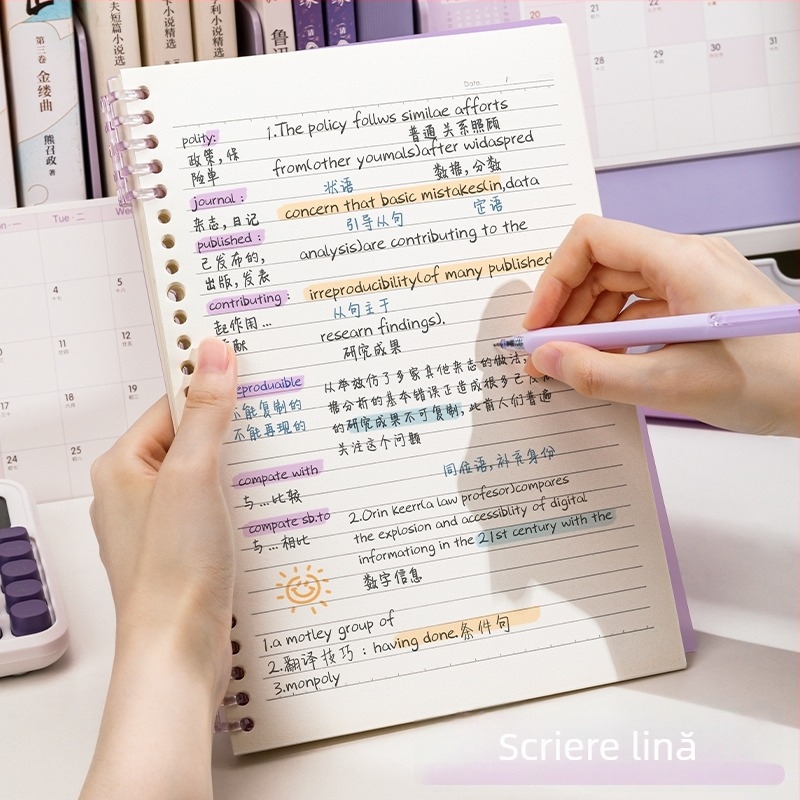 第三卷
金缕曲
熊召政
夫短篇小说精选
小说精选
鲁迅
Tu·二
We
20
21
22
28
29
30
31
4
5
11
12
17
18
19
24
25
Date.
polity:
政策,保
险单
journal:
杂志,日记
published:
己发布的,
出版,发表
contributing:
起作用...
献
eproduaible
不能复制的
不能再现的
compate with
与...比较
compate sb.to
与...相比
1.The policy follws similae afforts
普通 关系照顾
from(other youmals)after widaspred
状语 数据,分数
concern that basic mistakes(in,data
引导从句 定语
analysis)are contributing to the
irreproducibility(of many published
从句主干
researn findings).
研究成果
从举效仿了多家其他杂志的做法,
据分析的基本错误正造成很多己发
的研究成果不可复制,此前人们普遍
关注这个问题
同位语,补充身份
2.Orin Keerr(a law profesor)compares
the explosion and accessiblity of digital
informationg in the 21st century with the
数字信息
1.a motley group of
2.翻译技巧:having done.条件句
3.monpoly
Scriere lină